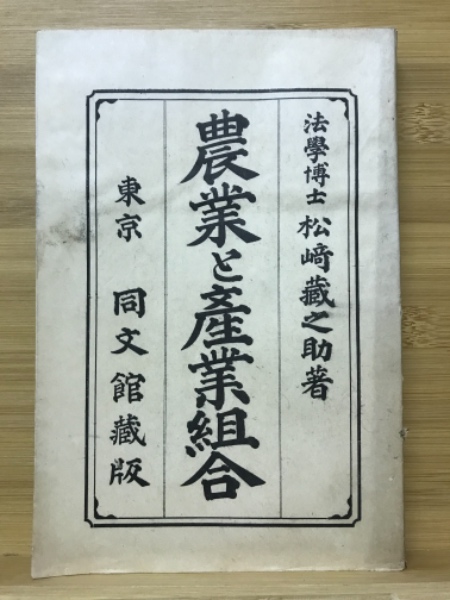 法學博士 松﨑藏之助著
農業と產業組合
東京 同文館藏版